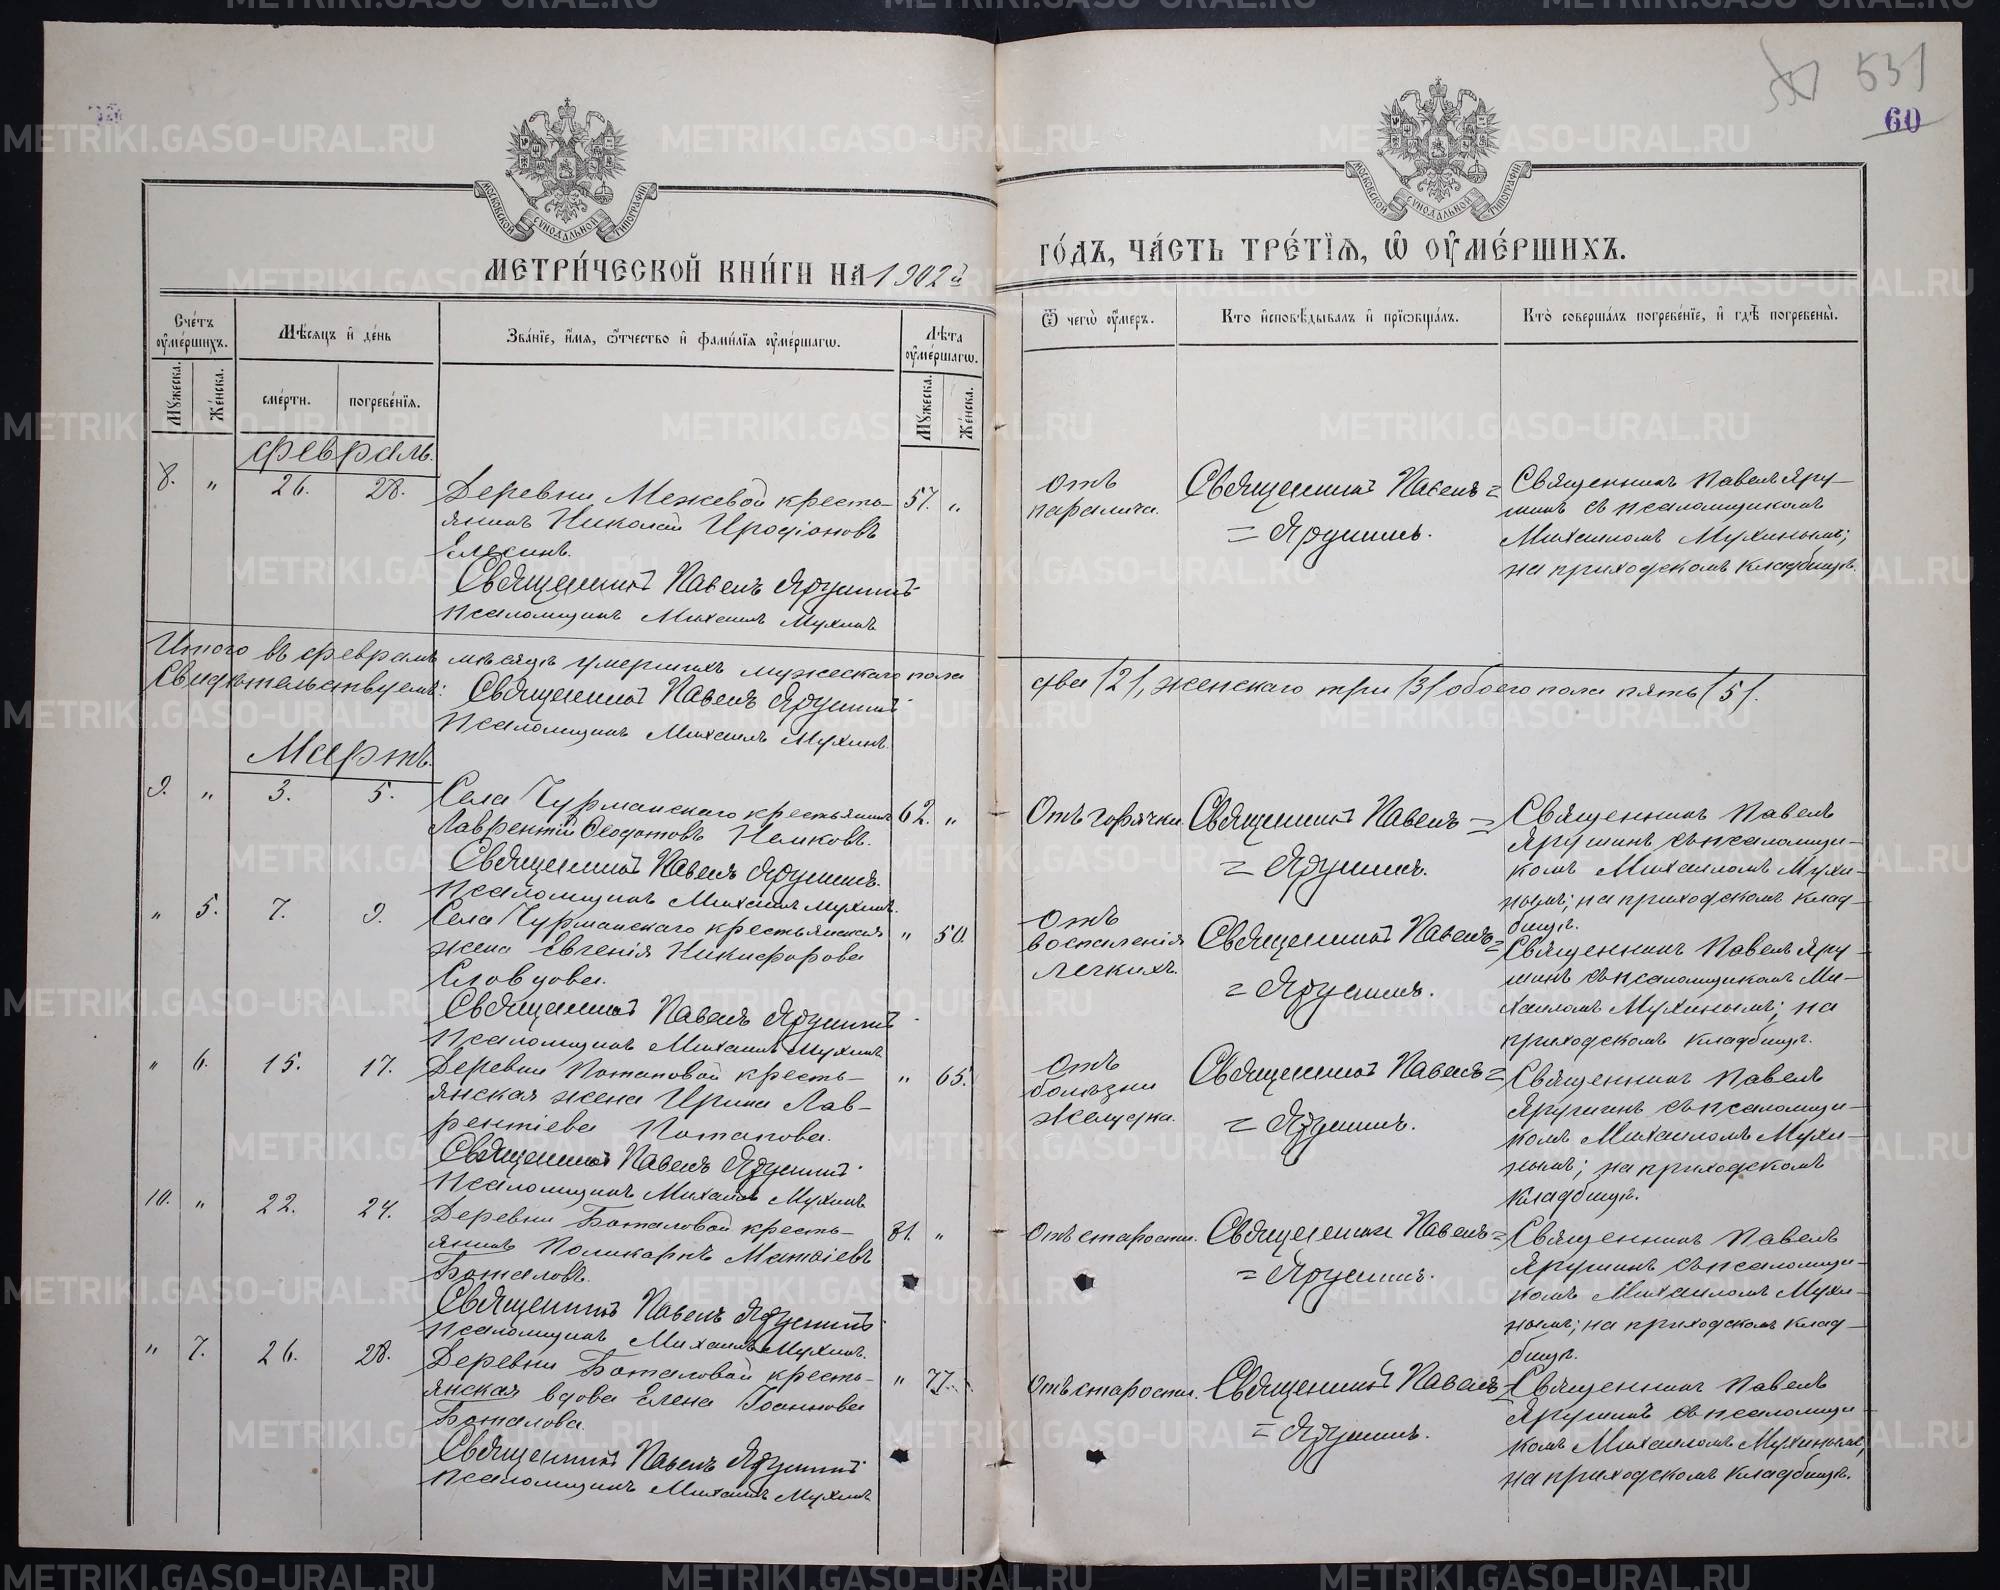 531
60
МОСКОВСКОЙ СѴНОДАЛЬНОЙ ТИПОГРАФІИ
МОСКОВСКОЙ СѴНОДАЛЬНОЙ ТИПОГРАФІИ
МЕТРИ́ЧЕСКОЙ КНИ́ГИ НА 1902й
ГО́ДЪ, ЧА́СТЬ ТРЕ́ТІѦ, Ѿ ОУ҆МЕ́РШИХЪ.
Сче́тъ оу҆ме́ршихъ.
Мѣ́сяцъ и҆ де́нь
Зва́нїе, и҆́мѧ, ѻ҆́тчество и҆ фами́лїѧ оу҆ме́ршагѡ.
Лѣ́та оу҆ме́ршагѡ.
Ѿ чегѡ̀ оу҆́меръ.
Кто̀ и҆сповѣ́дывалъ и҆ прїѡбща́лъ.
Кто̀ соверша́лъ погребе́нїе, и҆ гдѣ̀ погребены̀.
Мꙋ́жеска.
Же́нска.
сме́рти.
погребе́нїѧ.
Мꙋ́жеска.
Же́нска.
февраль.
8. „ 26. 28. Деревни Межевой кресть-
янинъ Николай Иродіоновъ
Елесинъ.
57. „
Священникъ Павелъ Ярушинъ
псаломщикъ Михаилъ Мухинъ
Отъ
паралича.
Священникъ Павелъ =
= Ярушинъ.
Священникъ Павелъ Яру-
шинъ съ псаломщикомъ
Михаиломъ Мухинымъ;
на приходскомъ кладбищѣ.
Итого въ февралѣ мѣсяцѣ умершихъ мужескаго пола
два /2/, женскаго три /3/ обоего пола пять /5/.
Свидѣтельствуемъ: Священникъ Павелъ Ярушинъ
псаломщикъ Михаилъ Мухинъ.
Мартъ.
9. „ 3. 5. Села Чурманскаго крестьянинъ
Лаврентій Ѳеодотовъ
62. „
Священникъ Павелъ Ярушинъ.
псаломщикъ Михаилъ Мухинъ.
Отъ горячки.
Священникъ Павелъ =
= Ярушинъ.
Священникъ Павелъ
Ярушинъ съ псаломщи-
комъ Михаиломъ Мухи-
нымъ; на приходскомъ клад-
бищѣ.
„ 5. 7. 9. Села Чурманскаго крестьянская
жена Евгенія Никифорова
Словцова.
„ 50.
Священникъ Павелъ Ярушинъ
псаломщикъ Михаилъ Мухинъ
Отъ
воспаленія
легкихъ.
Священникъ Павелъ =
= Ярушинъ.
Священникъ Павелъ Яру-
шинъ съ псаломщикомъ Ми-
хаиломъ Мухинымъ; на
приходскомъ кладбищѣ.
„ 6. 15. 17. Деревни Потаповой кресть-
янская жена Ирина Лав-
рентіева Потапова.
„ 65.
Священникъ Павелъ Ярушинъ
псаломщикъ Михаилъ Мухинъ
Отъ
болѣзни
желудка.
Священникъ Павелъ =
= Ярушинъ.
Священникъ Павелъ
Ярушинъ съ псаломщи-
комъ Михаиломъ Мухи-
нымъ; на приходскомъ
кладбищѣ.
10. „ 22. 24. Деревни Боталовой кресть-
янинъ Поликарпъ Матѳіевъ
Боталовъ.
81. „
Священникъ Павелъ Ярушинъ
псаломщикъ Михаилъ Мухинъ.
Отъ старости.
Священникъ Павелъ =
= Ярушинъ.
Священникъ Павелъ
Ярушинъ съ псаломщи-
комъ Михаиломъ Мухи-
нымъ; на приходскомъ клад-
бищѣ.
„ 7. 26. 28. Деревни Боталовой кресть-
янская вдова Елена Іоаннова
Боталова.
„ 77.
Священникъ Павелъ Ярушинъ
псаломщикъ Михаилъ Мухинъ
Отъ старости.
Священникъ Павелъ
= Ярушинъ.
Священникъ Павелъ
Ярушинъ съ псаломщи-
комъ Михаиломъ Мухинымъ,
на приходскомъ кладбищѣ.
METRIKI.GASO-URAL.RU